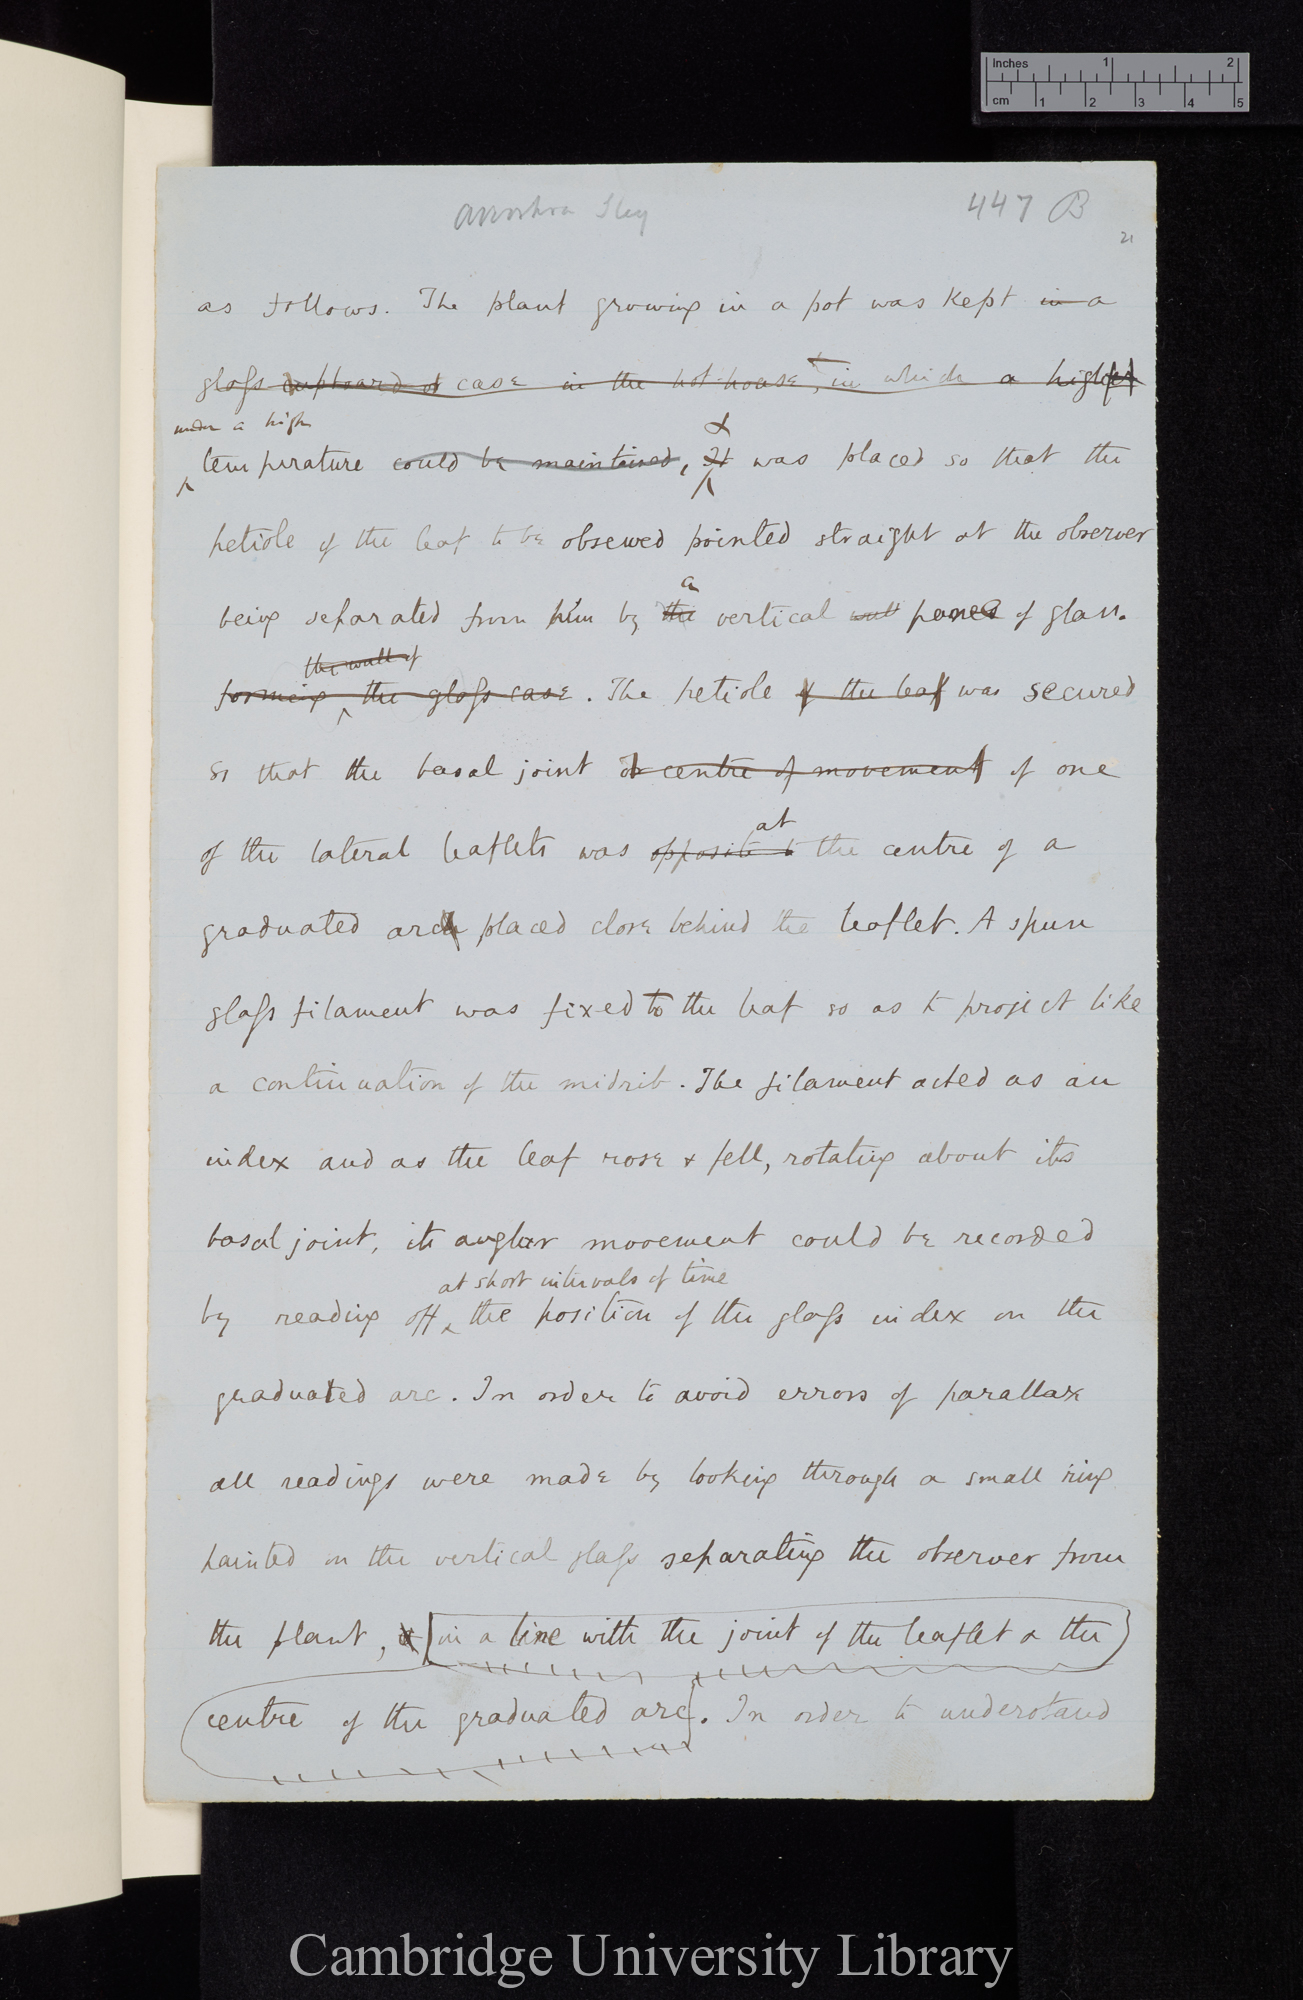 Inches 1 2
cm 1 2 3 4 5
447 B
21
as follows. The plant growing in a pot was kept in a
glass cupboard or case in the hot-house, in which a higher
under a high
temperature could be maintained, It & was placed so that the
petiole of the leaf to be observed pointed straight at the observer
a
being separated from him by the vertical wall panes of glass.
the wall of
forming the glass case. The petiole of the leaf was secured
so that the basal joint or centre of movement of one
at
of the lateral leaflets was opposite to the centre of a
graduated arch placed close behind the leaflet. A spun
glass filament was fixed to the leaf so as to project like
a continuation of the midrib. The filament acted as an
index and as the leaf rose & fell, rotating about its
basal joint, its angular movement could be recorded
at short intervals of time
by reading off the position of the glass index on the
graduated arc. In order to avoid errors of parallax
all readings were made by looking through a small ring
painted on the vertical glass separating the observer from
the plant, & in a line with the joint of the leaflet & the
centre of the graduated arc. In order to understand
Cambridge University Library